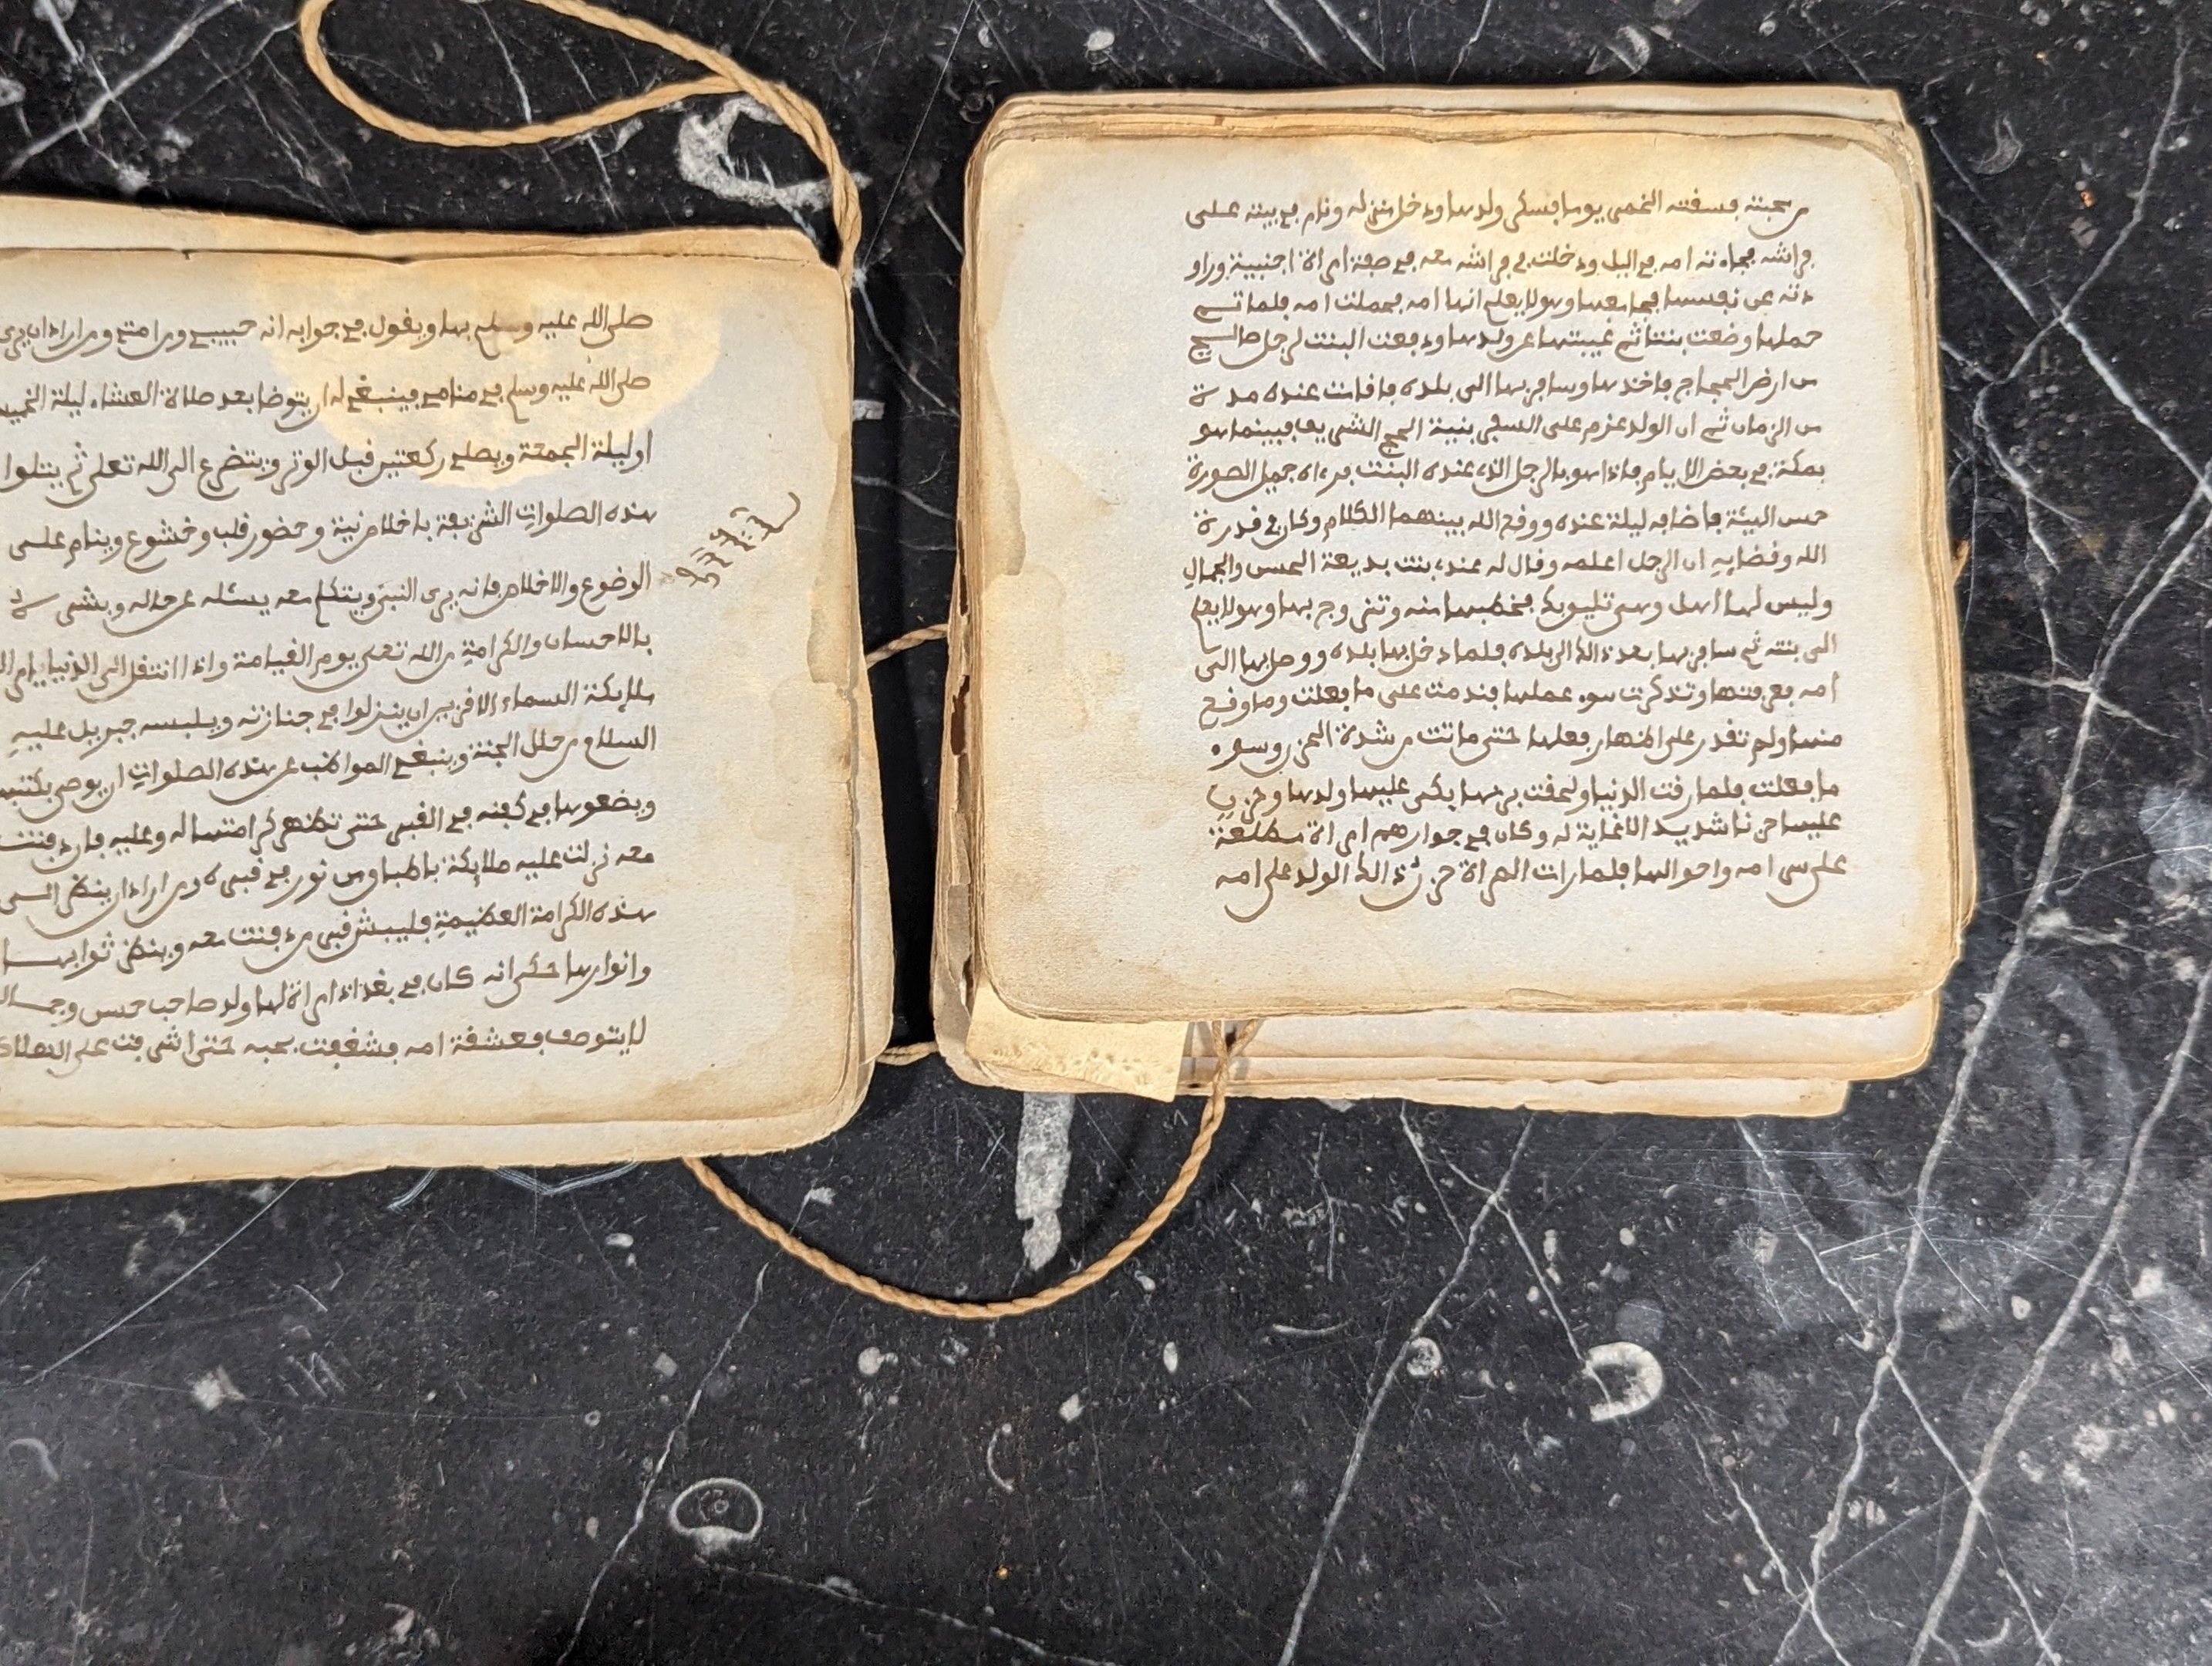 صلى الله عليه وسلم بها ويقول في جوابه انه حبيبي ومن امتي ومن اراد ان يرى
صلى الله عليه وسلم في منامه فينبغي له ان يتوضا بعد صلاة العشاء ليلة الخميس
او ليلة الجمعة ويصلي ركعتين قبل الوتر ويتضرع الى الله تعلى ثم يتلوا
هذه الصلوات الشريفة باخلاص نية وحضور قلب وخشوع وينام على
الوضوء والاخلاص فانه يرى النبي ويتكلم معه يسئله عن حاله وبشره
بالاحسان والكرامة من الله تعلى يوم القيامة واذا انتقل الى الدنيا
ملايكة السماء الاقربين ان ينزلوا في جنازته ويلبسه جبريل عليه
السلام من حلل الجنة وينبغي المواظب عن هذه الصلوات ان يوصي بكتبها
ويضعوها في كفنه في القبر حتى تظهر كرامتها له وعليه فان دفنت
معه نزلت عليه ملايكة باطباق من نور في قبره ومن اراد ان ينظر الى
هذه الكرامة العظيمة فلينبش قبر من دفنت معه وينظر ثوابها
وانوارها حكي انه كان في بغداد امراة لها ولد صاحب حسن وجمال
لا يتوصف فعشقة امه وشغفت بحبه حتى اشرفت على الهلاك
من محبته فسقته الخمر يوما فسكر ولدها ودخل منزله ونام في بيته على
فراشه فجاءته امه في اليل ودخلت في فراشه معه في صفة امراة اجنبية وراو
دته عن نفسها فجامعها وهو لا يعلم انها امه فحملت امه فلما تم
حملها وضعت بنتا ثم غيبتها عن ولدها ودفعت البنت لرجل صالح
من ارض الحجاج فاخذها وسافر بها الى بلده فاقامت عنده مدة
من الزمان ثم ان الولد عزم على السفر بنية الحج الشريف فبينما هو
بمكة في بعض الايام فاذا هو بالرجل الذي عنده البنت فرءاه جميل الصورة
حسن الهيئة فاضافه ليلة عنده ووقع الله بينهما الكلام وكان في قدرة
الله وقضايه ان الرجل اعلمه وقال له عندي بنت بديعة الحسن والجمال
وليس لها اهل وهي تليق بك فخطبها منه وتزوج بها وهو لا يعلم
الى بنته ثم سافر بها بعد ذالك الى بلده فلما دخل بها بلده ووصل بها الى
امه فعرفتها وتذكرت سوء عملها فندمت على ما فعلت وما وقع
منها ولم تقدر على اظهار فعلها حتى ماتت من شدة الحزن وسوء
ما فعلت فلما فارقت الدنيا ولحقت بربها بكى عليها ولدها وحزن
عليها حزنا شديد الا غاية له وكان في جوارهم امراة مطلعة
على سر امه واحوالها فلما رات المراة حزن ذالك الولد على امه